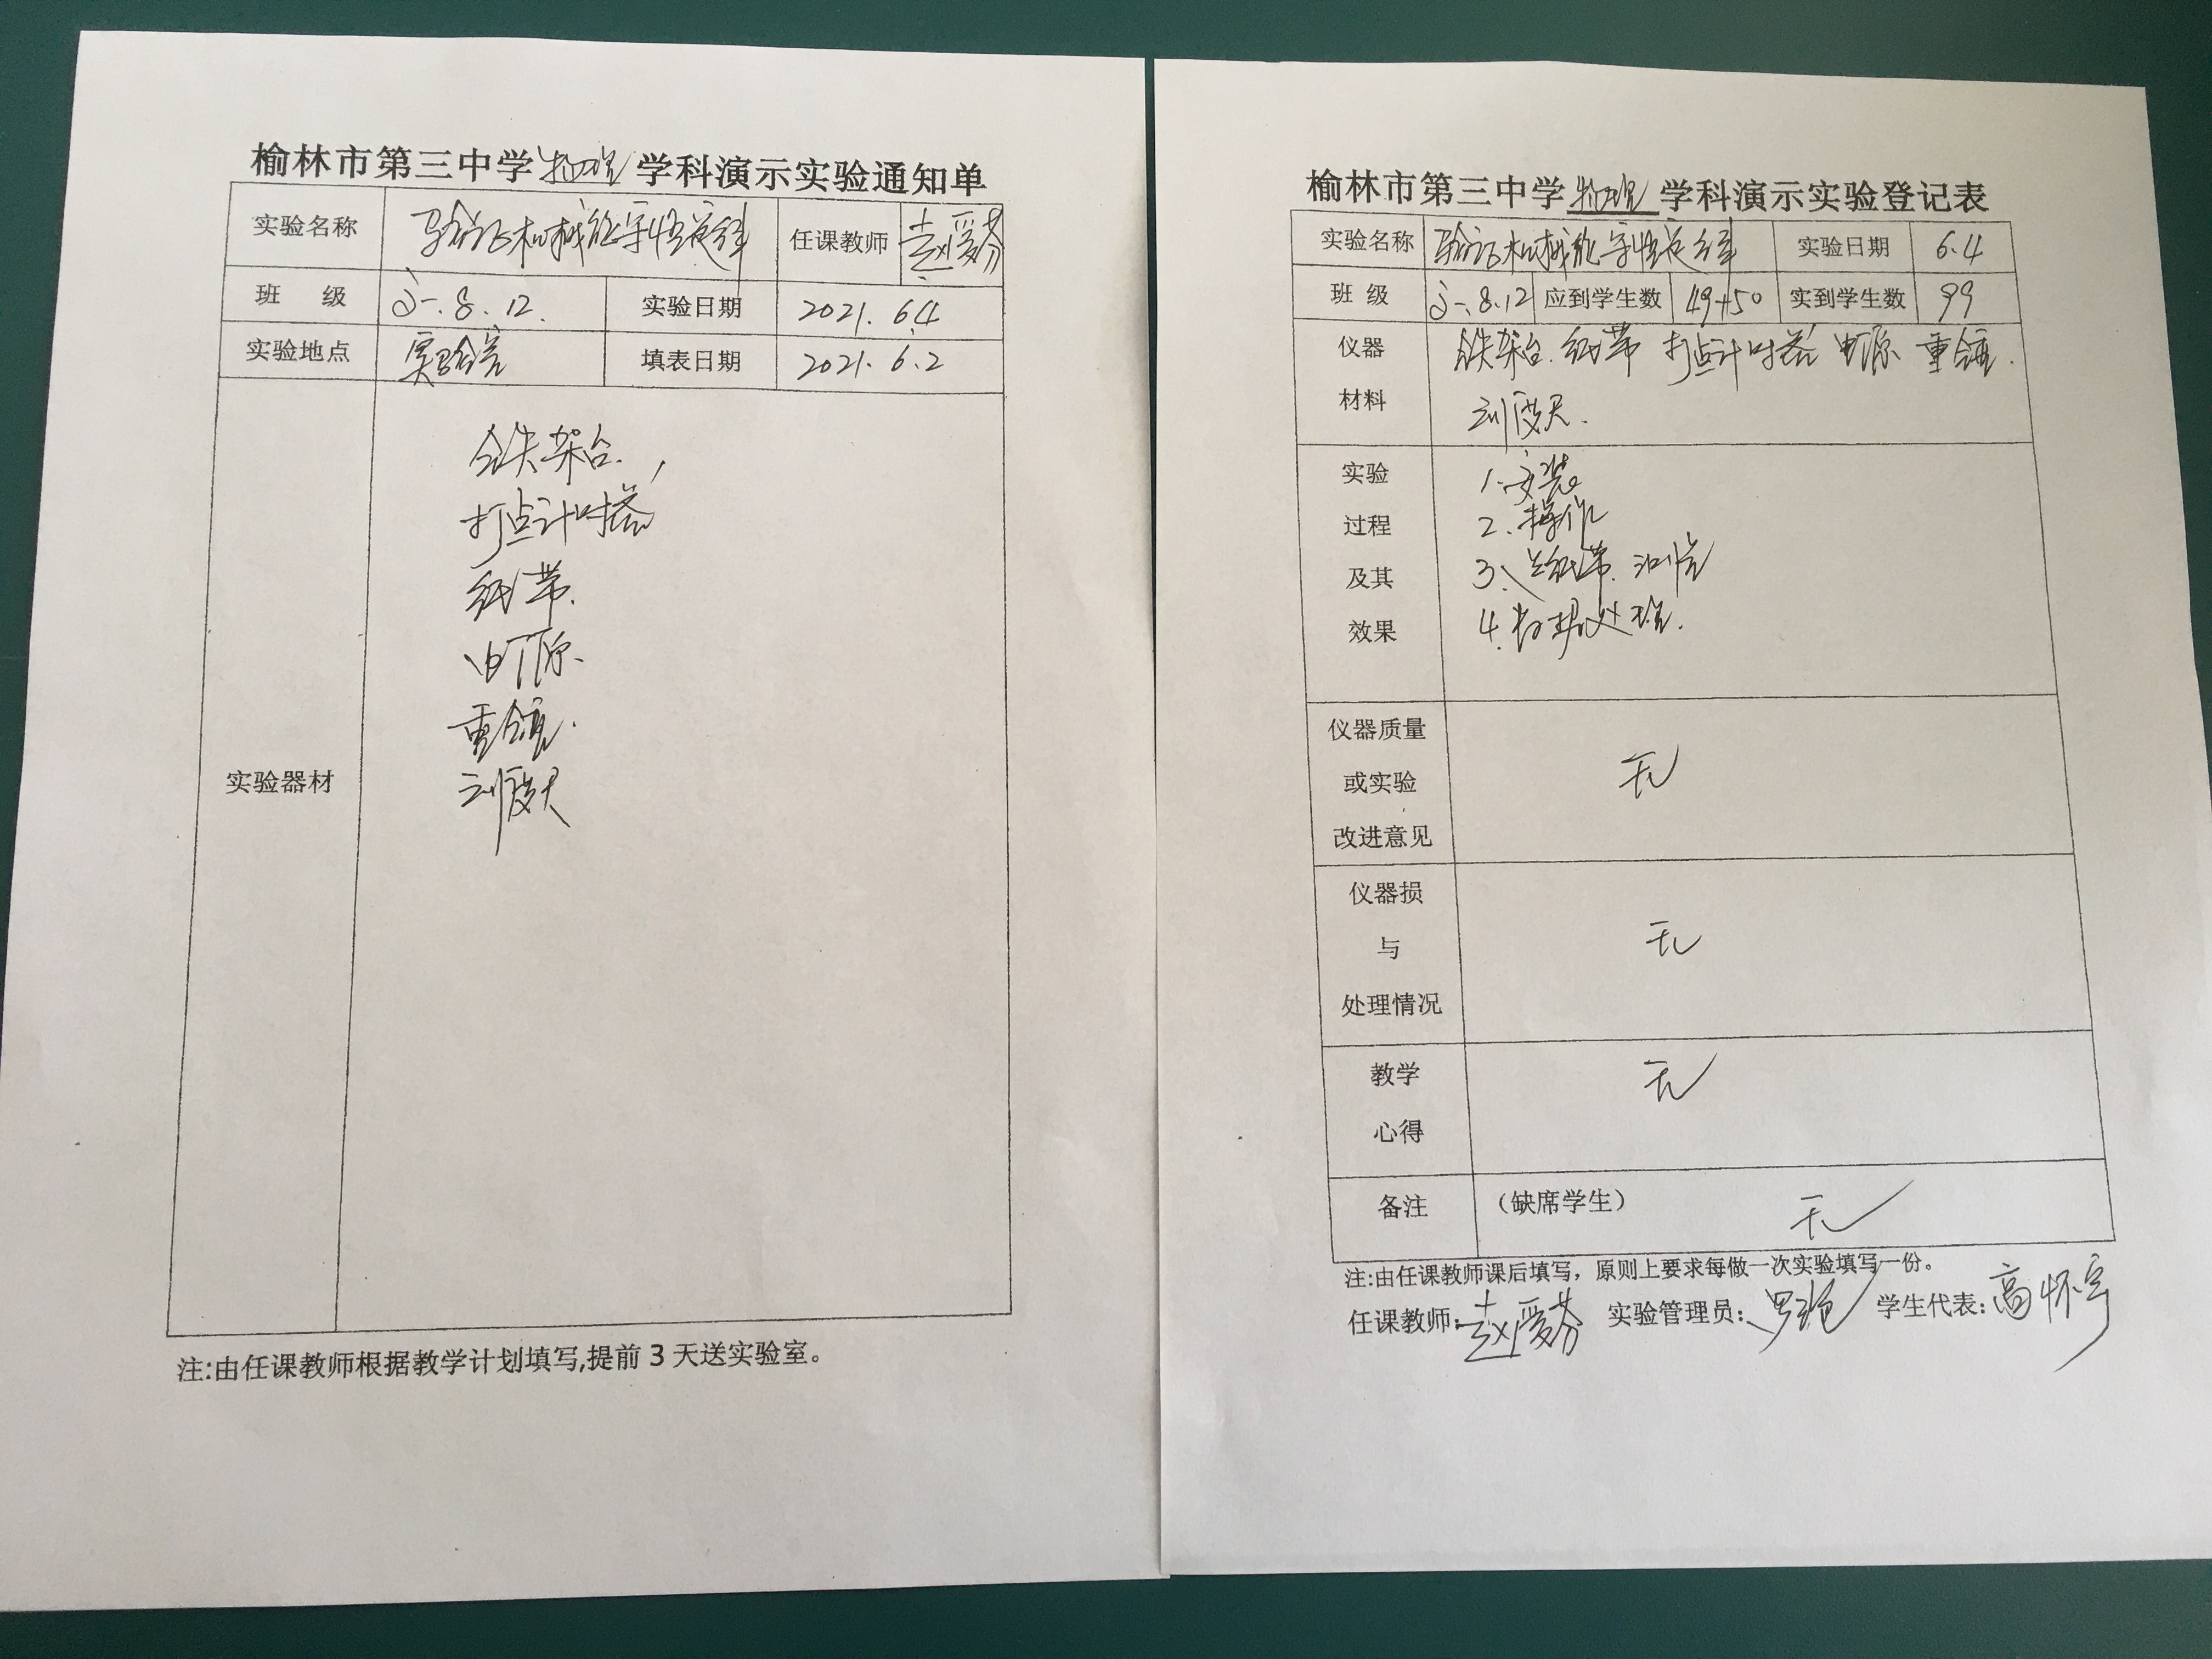 榆林市第三中学物理学科演示实验通知单
实验名称 验证机械能守恒定律 任课教师 赵爱芬
班 级 高一.8.12. 实验日期 2021.6.4
实验地点 实验室 填表日期 2021.6.2
实验器材
铁架台.
打点计时器
纸带.
电源.
重锤.
刻度尺
注:由任课教师根据教学计划填写,提前3天送实验室。
榆林市第三中学物理学科演示实验登记表
实验名称 验证机械能守恒定律 实验日期 6.4
班 级 高一.8.12 应到学生数 49+50 实到学生数 99
仪器材料 铁架台.纸带 打点计时器 电源 重锤.
刻度尺.
实验过程及其效果
1.安装
2.操作
3、选纸带.测量
4.数据处理.
仪器质量或实验改进意见 无
仪器损与处理情况 无
教学心得 无
备注 (缺席学生) 无
注:由任课教师课后填写，原则上要求每做一次实验填写一份。
任课教师:赵爱芬 实验管理员: 学生代表:高怀宇